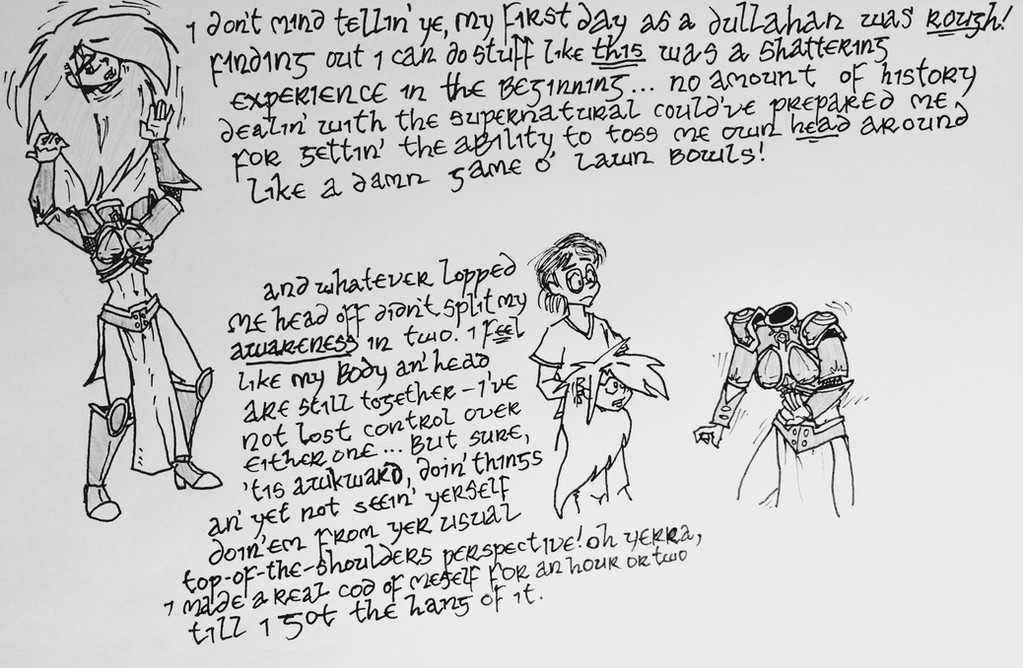 I don't mind tellin' ye, my first day as a dullahan was rough!
Finding out I can do stuff like this was a shattering
experience in the beginning... no amount of history
dealin' with the supernatural could've prepared me
for gettin' the ability to toss me own head around
like a damn game o' lawn bowls!
and whatever lopped
me head off didn't split my
awareness in two. I feel
like my body an' head
are still together – I've
not lost control over
either one... But sure,
'tis awkward, doin' things
an' yet not seein' yerself
doin' em from yer usual
top-of-the-shoulders perspective! oh yerra,
I made a real cod of meself for an hour or two
till I got the hang of it.